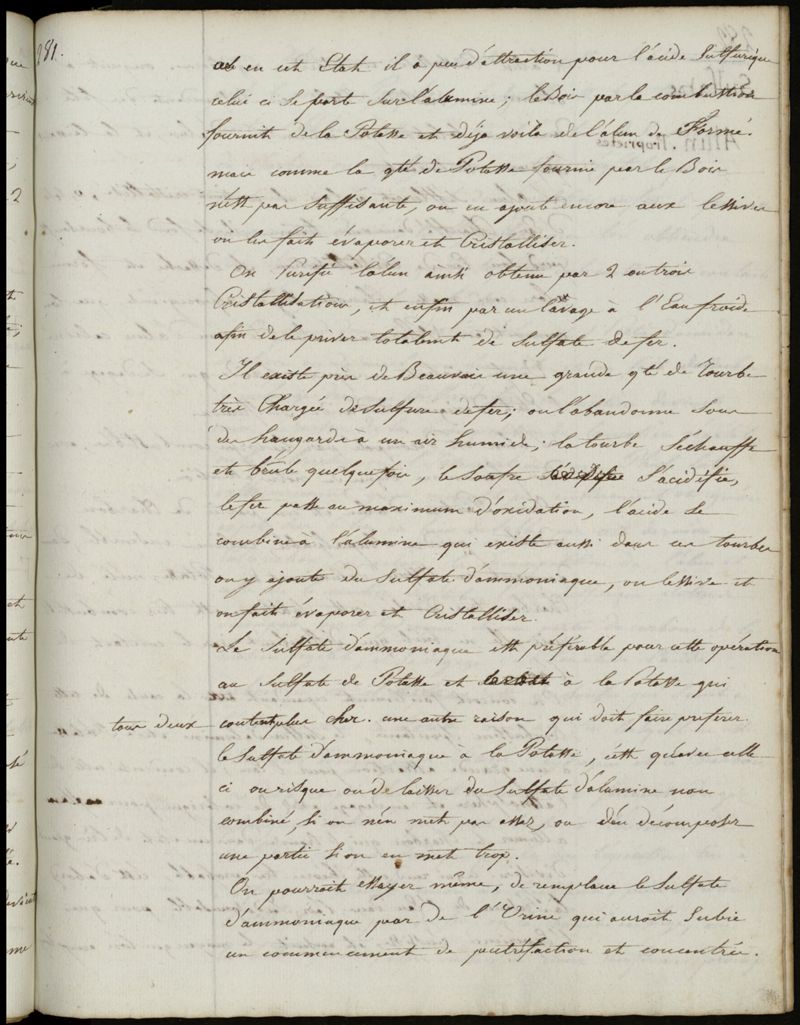 281.
en cet Etat il a peu d'attraction pour l'acide Sulfurique
celui ci se porte sur l'alumine; le Bois par la combustion
fournit de la Potasse et déja voila de l'alun de Formé.
mais comme la qté de Potasse fournie par le Bois
n'est pas Suffisante, on en ajoute encore aux lessives
on les fait évaporer et Cristalliser.
On Purifie l'alun ainsi obtenu par 2 ou trois
Cristallisations, et enfin par un lavage à l'Eau froide
afin de le priver totalemt de Sulfate de fer.
Il existe près de Beauvais une grande qté de Tourbe
très Chargée de Sulfure de fer; on l'abandonne Sous
des hangards à un air humide; la tourbe S'échauffe
et brûle quelquefois, le Soufre S'acidifie,
le fer passe au maximum d'oxidation, l'acide Se
combine à l'alumine qui existe aussi dans ces tourbes
on y ajoute du Sulfate d'ammoniaque, on lessive et
on fait évaporer et Cristalliser.
Le Sulfate d'ammoniaque est préférable pour cette opération
au Sulfate de Potasse et à la Potasse qui
tous deux coutent plus cher. une autre raison qui doit faire preferer
le Sulfate d'ammoniaque à la Potasse, c'est qu'avec celle
ci on risque ou de laisser du Sulfate d'alumine non
combiné, si on n'en met pas assez, ou d'en décomposer
une partie si on en met trop.
On pourroit essayer même, de remplacer le Sulfate
d'ammoniaque par de l'Urine qui auroit Subie
un commencement de putréfaction et concentrée.